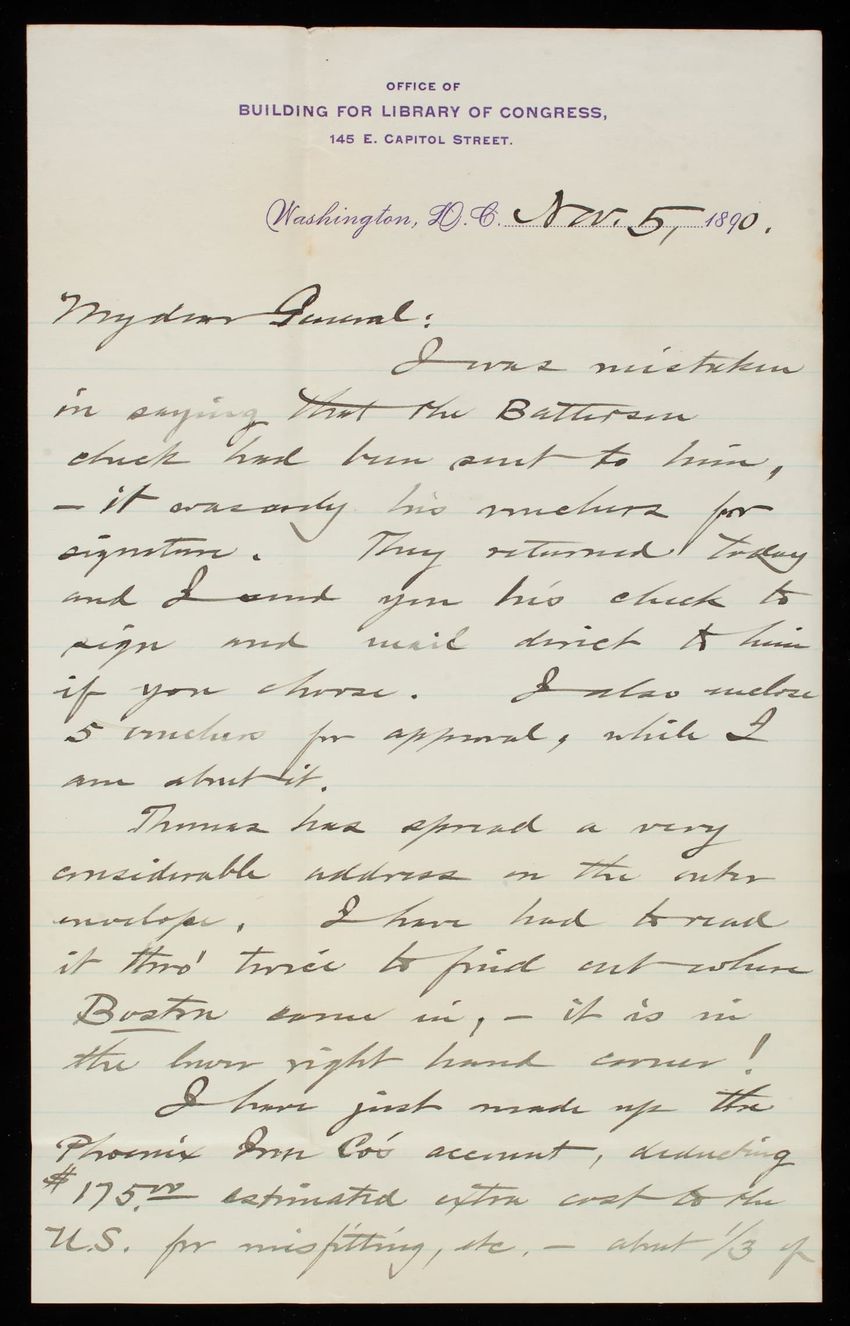 OFFICE OF
BUILDING FOR LIBRARY OF CONGRESS,
145 E. CAPITOL STREET.
Washington, D.C. Nov. 5, 1890.
My dear General:
I was mistaken
in saying that the Batterson
check had been sent to him,
– it was only his vouchers for
signature. They returned today
and I send you his check to
sign and mail direct to him
if you choose. I also inclose
5 vouchers for approval, while I
am about it.
Thomas has spread a very
considerable address on the outer
envelope. I have had to read
it thro' twice to find out where
Boston came in, – it is in
the lower right hand corner!
I have just made up the
Phoenix Iron Co's account, deducting
$175.00 estimated extra cost to the
U.S. for misfitting, etc. – about 1/3 of